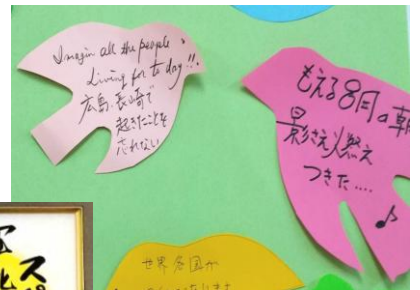 Imagin all the people
Living for to day!!
広島、長崎で
起きたことを
忘れない
もえる8月の朝
影さえ燃え
つきた....
世界各国が